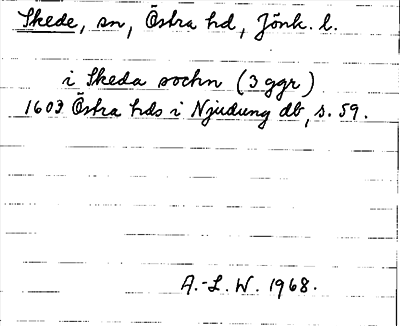 Skede, sn, Östra hd, Jönk. l.
i Skeda sochn (3 ggr)
1603 Östra hds i Njudung db, s. 59.
A.-L. W. 1968.